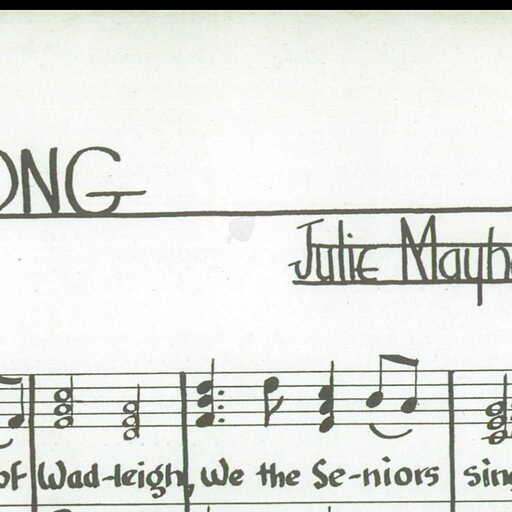 ONG
Julie Mayh
of Wad-leigh, We the Se-niors sing